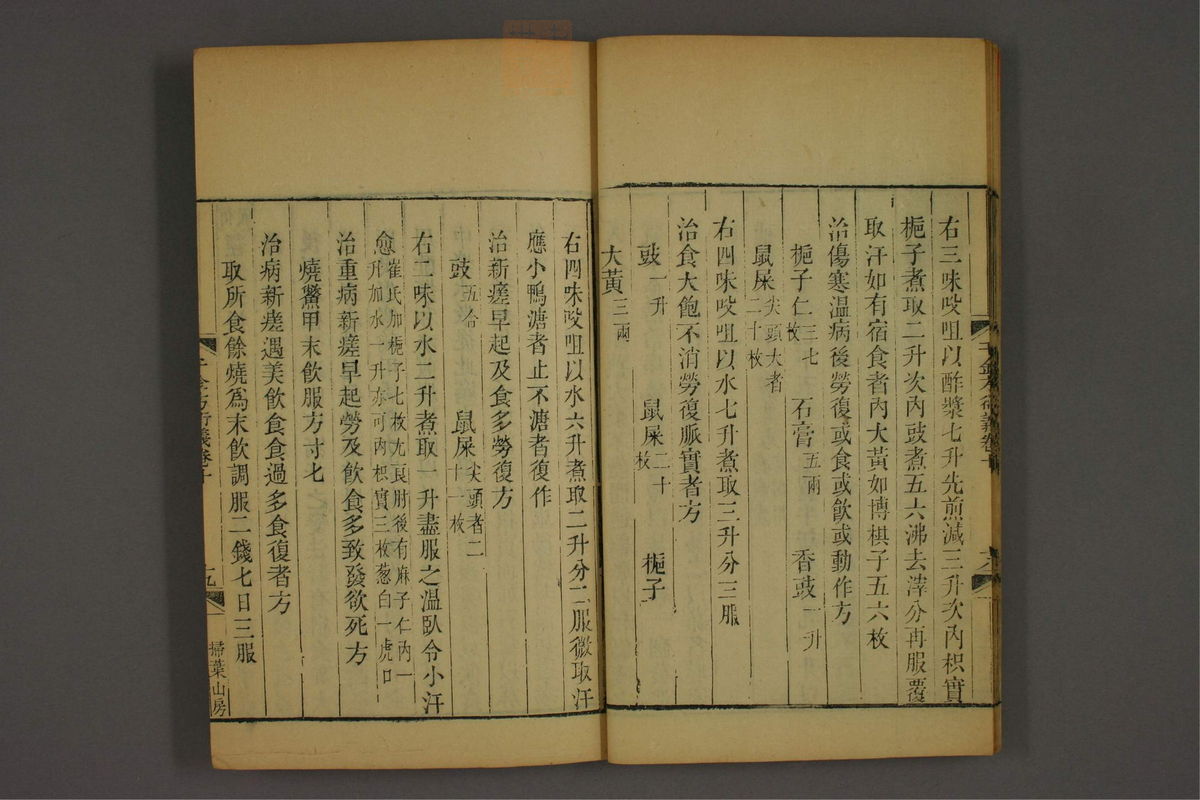 右三味㕮咀以酢漿七升先煎減三升次內枳實
梔子煮取二升次內豉煮五六沸去滓分再服覆
取汗如有宿食者內大黃如博棋子五六枚
治傷寒温病後勞復或食或飲或動作方
梔子仁三七枚 石膏五兩 香豉一升
鼠屎尖頭大者二十枚
右四味㕮咀以水七升煮取三升分三服
治食大飽不消勞復脈實者方
豉一升 鼠屎二十枚 梔子
大黃三兩
右四味㕮咀以水六升煮取二升分二服微取汗
應小鴨溏者止不溏者復作
治新瘥早起及食多勞復方
豉五合 鼠屎尖頭者二十一枚
右二味以水二升煮取一升盡服之温臥令小汗
愈崔氏加梔子七枚尤良肘後有麻子仁內一升加水一升亦可內枳實三枚葱白一虎口
治重病新瘥早起勞及飲食多致發欲死方
燒鱉甲末飲服方寸匕
治病新瘥遇美飲食食過多食復者方
取所食餘燒爲末飲調服二錢匕日三服
千金方衍義卷十
九
掃葉山房